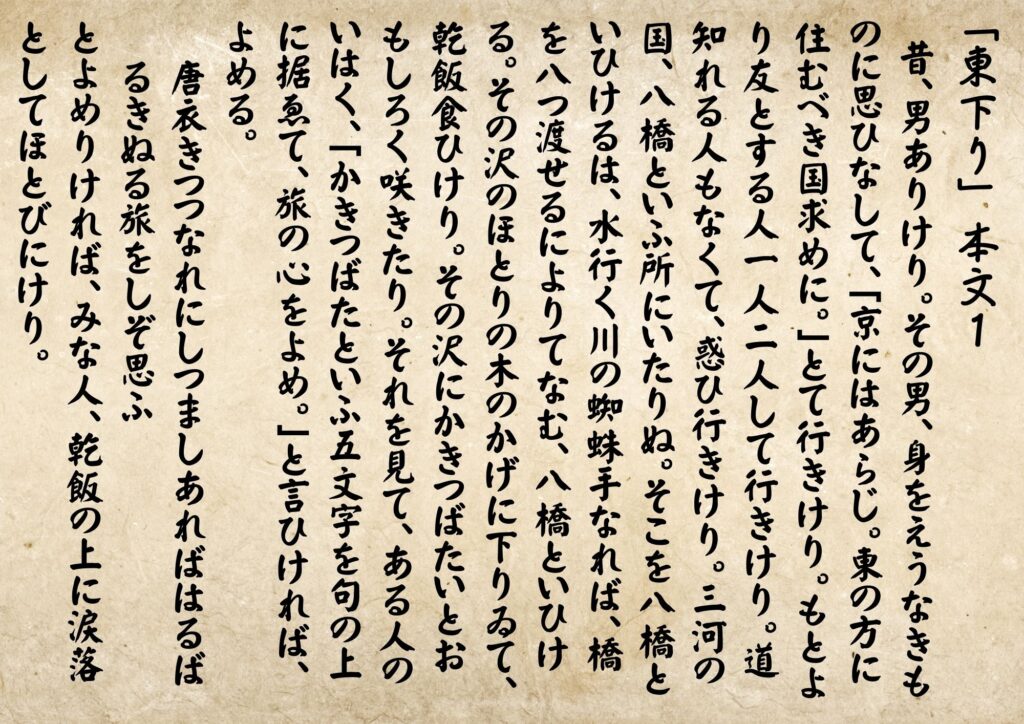 「東下り」 本文1
昔、男ありけり。その男、身をえうなきも
のに思ひなして、「京にはあらじ。東の方に
住むべき国求めに。」とて行きけり。もとよ
り友とする人一人二人して行きけり。道
知れる人もなくて、惑ひ行きけり。三河の
国、八橋といふ所にいたりぬ。そこを八橋と
いひけるは、水行く川の蜘蛛手なれば、橋
を八つ渡せるによりてなむ、八橋といひけ
る。その沢のほとりの木のかげに下りゐて、
乾飯食ひけり。その沢にかきつばたいとお
もしろく咲きたり。それを見て、ある人の
いはく、「かきつばたといふ五文字を句の上
に据ゑて、旅の心をよめ。」と言ひければ、
よめる。
唐衣きつつなれにしつましあればはるば
るきぬる旅をしぞ思ふ
とよめりければ、みな人、乾飯の上に涙落
としてほとびにけり。